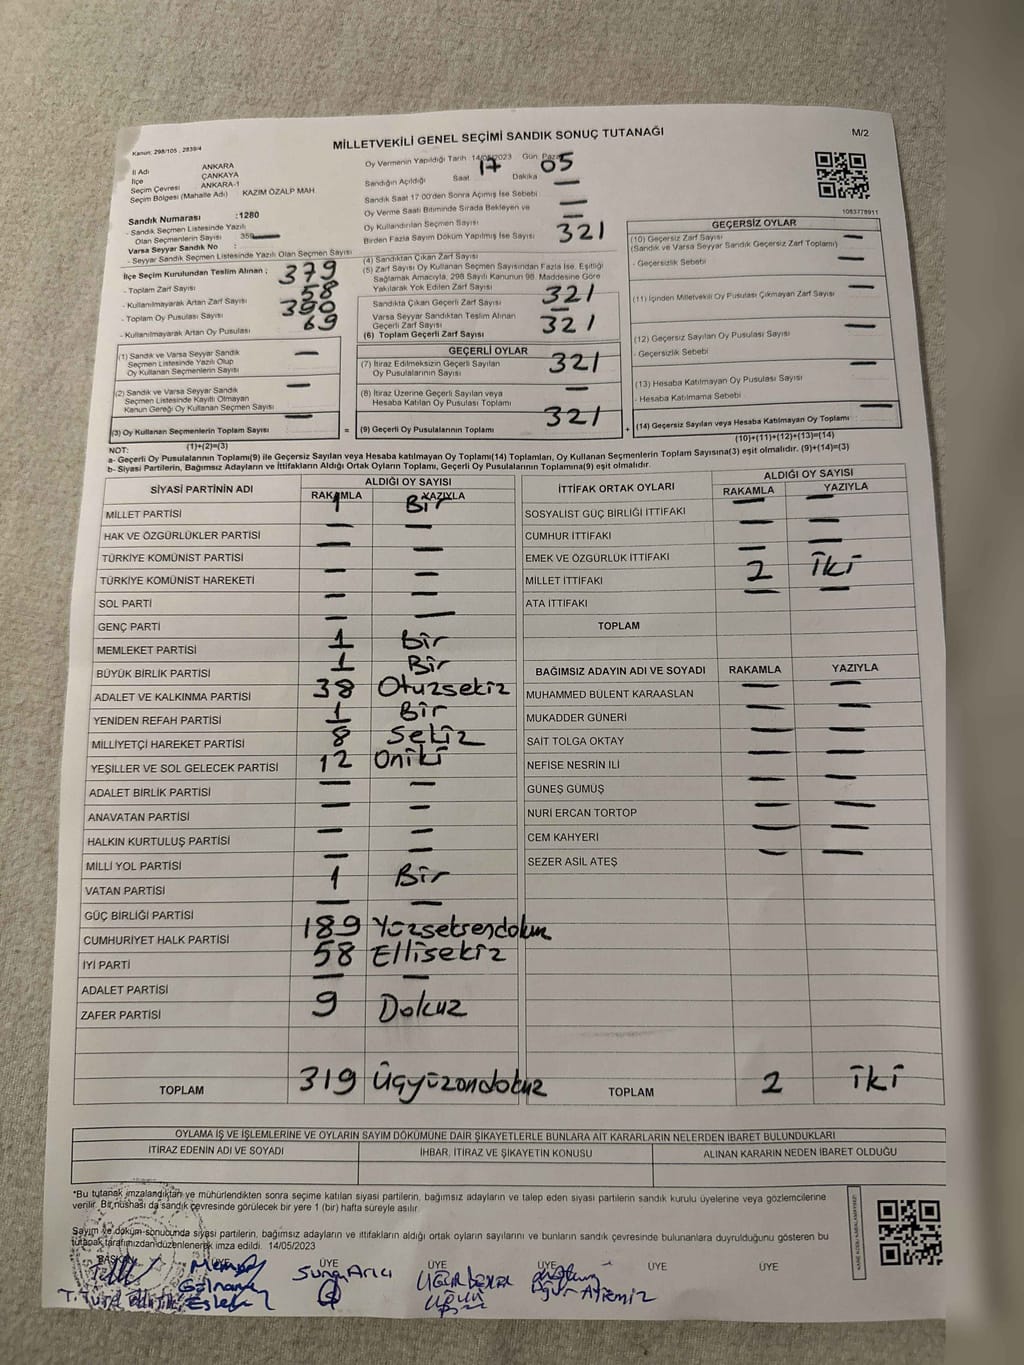 MİLLETVEKİLİ GENEL SEÇİMİ SANDIK SONUÇ TUTANAĞI
M/2
Kanun: 298/105 , 2839/4
İl Adı ANKARA
İlçe ÇANKAYA
Seçim Çevresi ANKARA-1
Seçim Bölgesi (Mahalle Adı) KAZIM ÖZALP MAH.
Sandık Numarası :1280
- Sandık Seçmen Listesinde Yazılı
Olan Seçmenlerin Sayısı
Varsa Seyyar Sandık No :
- Seyyar Sandık Seçmen Listesinde Yazılı Olan Seçmen Sayısı
İlçe Seçim Kurulundan Teslim Alınan ;
- Toplam Zarf Sayısı 379
- Kullanılmayarak Artan Zarf Sayısı 58
- Toplam Oy Pusulası Sayısı 390
- Kullanılmayarak Artan Oy Pusulası 69
(1) Sandık ve Varsa Seyyar Sandık
Seçmen Listesinde Yazılı Olup
Oy Kullanan Seçmenlerin Sayısı —
(2) Sandık ve Varsa Seyyar Sandık
Seçmen Listesinde Kayıtlı Olmayan
Kanun Gereği Oy Kullanan Seçmen Sayısı —
(3) Oy Kullanan Seçmenlerin Toplam Sayısı —
(1)+(2)=(3)
Oy Vermenin Yapıldığı Tarih 14/05/2023 Gün Pazar
Sandığın Açıldığı Saat 17 Dakika 05
Sandık Saat 17 00'den Sonra Açımış İse Sebebi —
Oy Verme Saati Bitiminde Sırada Bekleyen ve
Oy Kullandırılan Seçmen Sayısı —
Birden Fazla Sayım Döküm Yapılmış İse Sayısı —
(4) Sandıktan Çıkan Zarf Sayısı 321
(5) Zarf Sayısı Oy Kullanan Seçmen Sayısından Fazla İse, Eşitliği
Sağlamak Amacıyla, 298 Sayılı Kanunun 98. Maddesine Göre
Yakılarak Yok Edilen Zarf Sayısı
Sandıkta Çıkan Geçerli Zarf Sayısı 321
Varsa Seyyar Sandıktan Teslim Alınan
Geçerli Zarf Sayısı —
(6) Toplam Geçerli Zarf Sayısı 321
GEÇERLİ OYLAR
(7) İtiraz Edilmeksizin Geçerli Sayılan
Oy Pusulalarının Sayısı 321
(8) İtiraz Üzerine Geçerli Sayılan veya
Hesaba Katılan Oy Pusulası Toplamı —
= (9) Geçerli Oy Pusulalarının Toplamı 321
1083778911
GEÇERSİZ OYLAR
(10) Geçersiz Zarf Sayısı —
(Sandık ve Varsa Seyyar Sandık Geçersiz Zarf Toplamı)
- Geçersizlik Sebebi —
(11) İçinden Milletvekili Oy Pusulası Çıkmayan Zarf Sayısı —
(12) Geçersiz Sayılan Oy Pusulası Sayısı —
- Geçersizlik Sebebi
(13) Hesaba Katılmayan Oy Pusulası Sayısı —
- Hesaba Katılmama Sebebi
+ (14) Geçersiz Sayılan veya Hesaba Katılmayan Oy Toplamı : —
(10)+(11)+(12)+(13)=(14)
NOT:
a- Geçerli Oy Pusulalarının Toplamı(9) ile Geçersiz Sayılan veya Hesaba katılmayan Oy Toplamı(14) Toplamları, Oy Kullanan Seçmenlerin Toplam Sayısına(3) eşit olmalıdır. (9)+(14)=(3)
b- Siyasi Partilerin, Bağımsız Adayların ve İttifakların Aldığı Ortak Oyların Toplamı, Geçerli Oy Pusulalarının Toplamına(9) eşit olmalıdır.
SİYASİ PARTİNİN ADI ALDIĞI OY SAYISI
RAKAMLA YAZIYLA
MİLLET PARTİSİ 1 Bir
HAK VE ÖZGÜRLÜKLER PARTİSİ — —
TÜRKİYE KOMÜNİST PARTİSİ — —
TÜRKİYE KOMÜNİST HAREKETİ — —
SOL PARTİ — —
GENÇ PARTİ — —
MEMLEKET PARTİSİ 1 Bir
BÜYÜK BİRLİK PARTİSİ 1 Bir
ADALET VE KALKINMA PARTİSİ 38 Otuzsekiz
YENİDEN REFAH PARTİSİ 1 Bir
MİLLİYETÇİ HAREKET PARTİSİ 8 Sekiz
YEŞİLLER VE SOL GELECEK PARTİSİ 12 Oniki
ADALET BİRLİK PARTİSİ — —
ANAVATAN PARTİSİ — —
HALKIN KURTULUŞ PARTİSİ — —
MİLLİ YOL PARTİSİ — —
VATAN PARTİSİ 1 Bir
GÜÇ BİRLİĞİ PARTİSİ — —
CUMHURİYET HALK PARTİSİ 189 Yüzseksendokuz
İYİ PARTİ 58 Ellisekiz
ADALET PARTİSİ — —
ZAFER PARTİSİ 9 Dokuz
TOPLAM 319 Üçyüzondokuz
İTTİFAK ORTAK OYLARI ALDIĞI OY SAYISI
RAKAMLA YAZIYLA
SOSYALİST GÜÇ BİRLİĞİ İTTİFAKI — —
CUMHUR İTTİFAKI — —
EMEK VE ÖZGÜRLÜK İTTİFAKI — —
MİLLET İTTİFAKI 2 iki
ATA İTTİFAKI — —
TOPLAM
BAĞIMSIZ ADAYIN ADI VE SOYADI RAKAMLA YAZIYLA
MUHAMMED BÜLENT KARAASLAN — —
MUKADDER GÜNERİ — —
SAİT TOLGA OKTAY — —
NEFİSE NESRİN İLİ — —
GÜNEŞ GÜMÜŞ — —
NURİ ERCAN TORTOP — —
CEM KAHYERİ — —
SEZER ASİL ATEŞ — —
TOPLAM 2 iki
OYLAMA İŞ VE İŞLEMLERİNE VE OYLARIN SAYIM DÖKÜMÜNE DAİR ŞİKAYETLERLE BUNLARA AİT KARARLARIN NELERDEN İBARET BULUNDUKLARI
İTİRAZ EDENİN ADI VE SOYADI İHBAR, İTİRAZ VE ŞİKAYETİN KONUSU ALINAN KARARIN NEDEN İBARET OLDUĞU
*Bu tutanak imzalandıktan ve mühürlendikten sonra seçime katılan siyasi partilerin, bağımsız adayların ve talep eden siyasi partilerin sandık kurulu üyelerine veya gözlemcilerine
verilir. Bir nüshası da sandık çevresinde görülecek bir yere 1 (bir) hafta süreyle asılır.
Sayım ve döküm sonucunda siyasi partilerin, bağımsız adayların ve ittifakların aldığı ortak oyların sayılarını ve bunların sandık çevresinde bulunanlara duyrulduğunu gösteren bu
tutanak tarafımızdan düzenlenerek imza edildi. 14/05/2023
BAŞKAN ÜYE ÜYE ÜYE ÜYE ÜYE
Sungu Arıcı